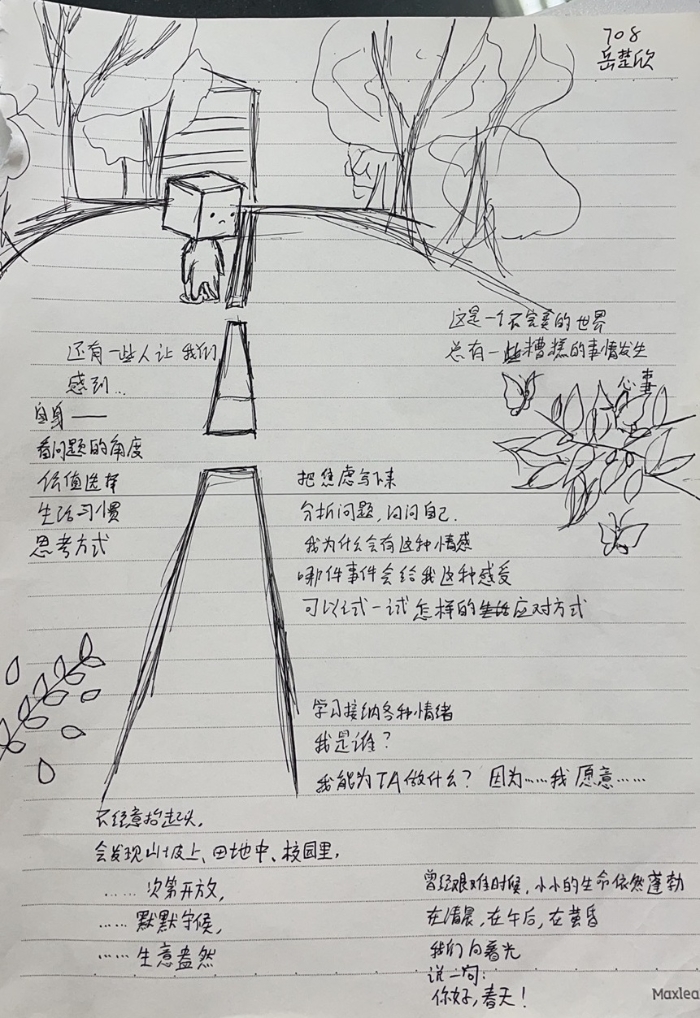 708
岳楚欣
这是一个不完美的世界
总有一些糟糕的事情发生
心事
还有一些人让我们
感到…
自身——
看问题的角度
价值选择
生活习惯
思考方式
把焦虑写下来
分析问题,问问自己.
我为什么会有这种情感
哪件事件会给我这种感受
可以试一试怎样的应对方式
学习接纳各种情绪
我是谁?
我能为TA做什么? 因为……我愿意……
不经意抬起头,
会发现山坡上、田地中、校园里,
……次第开放,
……默默守候,
……生意盎然
曾经艰难时候,小小的生命依然蓬勃
在清晨,在午后,在黄昏
我们向着光
说一句:
你好,春天!
Maxlea